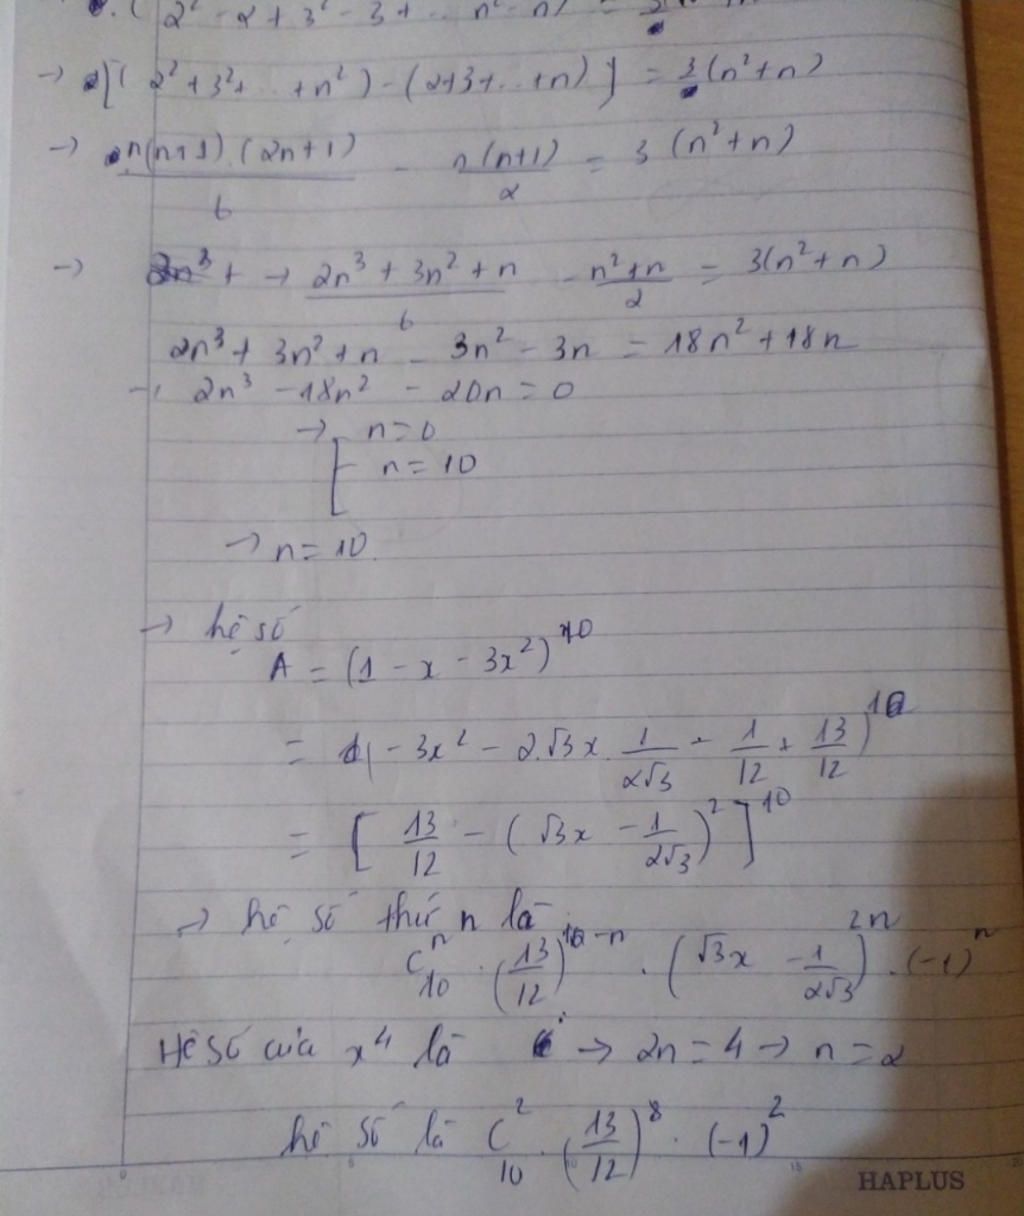 ( 2² - 2 + 3² - 3 + .. n² - n)
→ 2[( 2² + 3² + .. + n² ) - (2+3+...+n) ] = 3 (n²+n)
→ n(n+1) (2n+1)/6 - n(n+1)/2 = 3 (n²+n)
→ + → (2n³ + 3n² + n)/6 - (n²+n)/2 = 3(n²+n)
2n³ + 3n² + n - 3n² - 3n = 18n² + 18n
→ 2n³ - 18n² - 20n = 0
→ [ n = 0
n = 10
→ n = 10.
→ hệ số
A = (1 - x - 3x²)¹⁰
= ( - 3x² - 2.√3x . 1/(2√3) - 1/12 + 13/12 )¹⁰
= [ 13/12 - ( √3x - 1/(2√3) )² ]¹⁰
→ hệ số thứ n là
C₁₀ⁿ . (13/12)¹⁰⁻ⁿ . ( √3x - 1/(2√3) )²ⁿ . (-1)ⁿ
Hệ số của x⁴ là → 2n = 4 → n = 2
hệ số là C₁₀² . (13/12)⁸ . (-1)²
HAPLUS